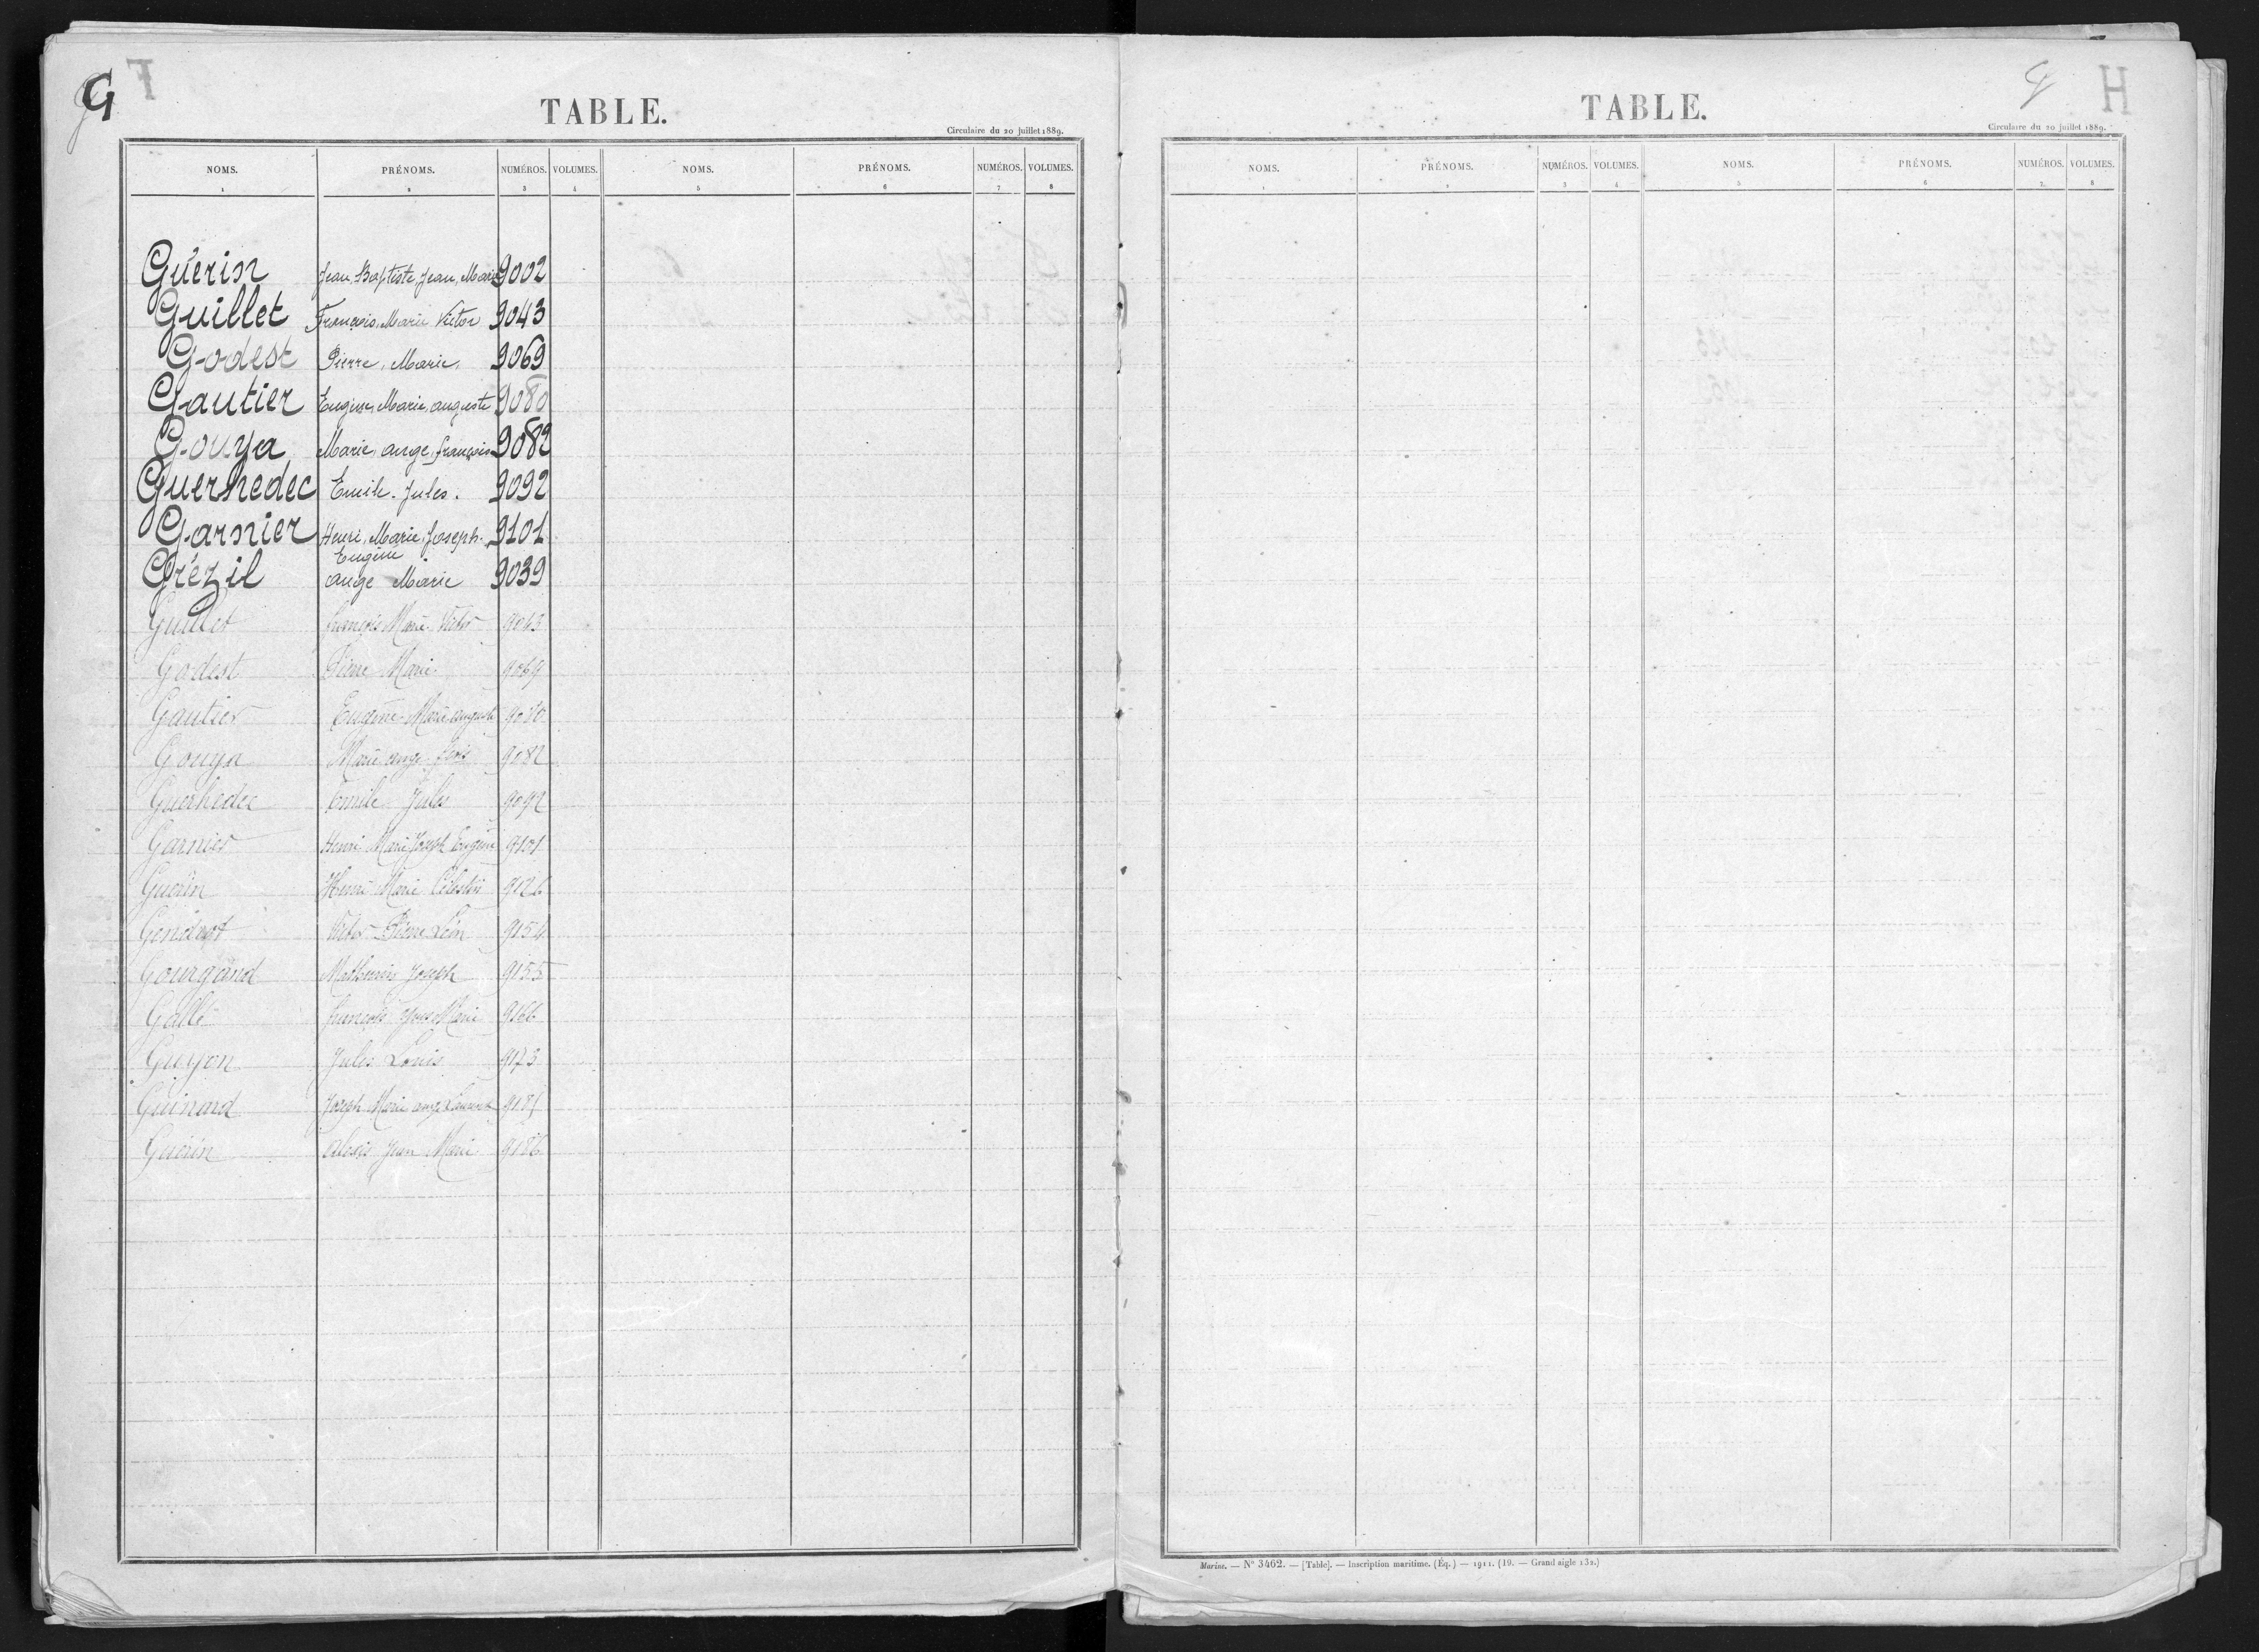 G
TABLE.
Circulaire du 20 juillet 1889.
NOMS. PRÉNOMS. NUMÉROS. VOLUMES. NOMS. PRÉNOMS. NUMÉROS. VOLUMES.
1 2 3 4 5 6 7 8
Guérin Jean Baptiste, Jean, Marie 9002
Guillet François, Marie Victor 9043
Godest Pierre, Marie, 9069
Gautier Eugène, Marie, auguste 9080
Gouya Marie, ange, françois 9082
Guerhedec Emile. Jules. 9092
Garnier Henri, Marie, Joseph. Eugène 9101
Grézil ange Marie 9039
Guillet françois Marie Victor 9043
Godest Pierre Marie 9069
Gautier Eugène Marie auguste 9080
Gouya Marie ange fçois 9082
Guerhedec Emile Jules 9092
Garnier Henri Marie Joseph Eugène 9101
Guérin Henri Marie Célestin 9126
Gendrot Victor Pierre Léon 9154
Gourgand Mathurin Joseph 9155
Gallé françois Yves Marie 9166
Guyon Jules Louis 9173
Guinard Joseph Marie ange Laurent 9181
Guérin Alexis Jean Marie 9186
G
TABLE.
Circulaire du 20 juillet 1889.
NOMS. PRÉNOMS. NUMÉROS. VOLUMES. NOMS. PRÉNOMS. NUMÉROS. VOLUMES.
1 2 3 4 5 6 7. 8
Marine. — N° 3462. — [Table]. — Inscription maritime. (Éq.) — 1911. (19. — Grand aigle 132.)